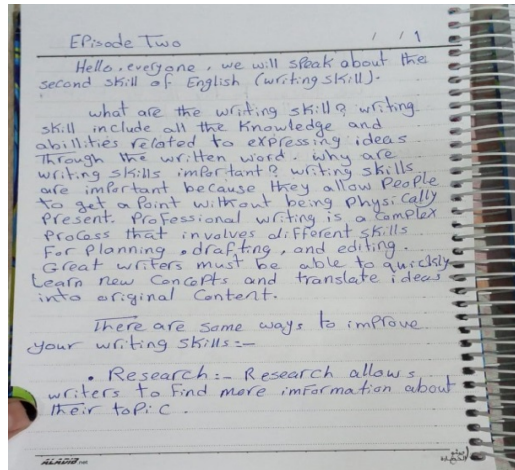 Episode Two
/ / 1
Hello, everyone, we will speak about the
second skill of English (writing skill).
what are the writing skill? writing
skill include all the Knowledge and
abillities related to expressing ideas
Through the written word. why are
writing skills important? writing skills
are important because they allow People
to get a Point without being Physically
Present. Professional writing is a complex
Process that involves different skills
For Planning, drafting, and editing.
Great writers must be able to quickly
Learn new Concepts and translate ideas
into original Content.
There are some ways to improve
your writing skills:-
• Research:- Research allows
writers to find more imformation about
their topic.